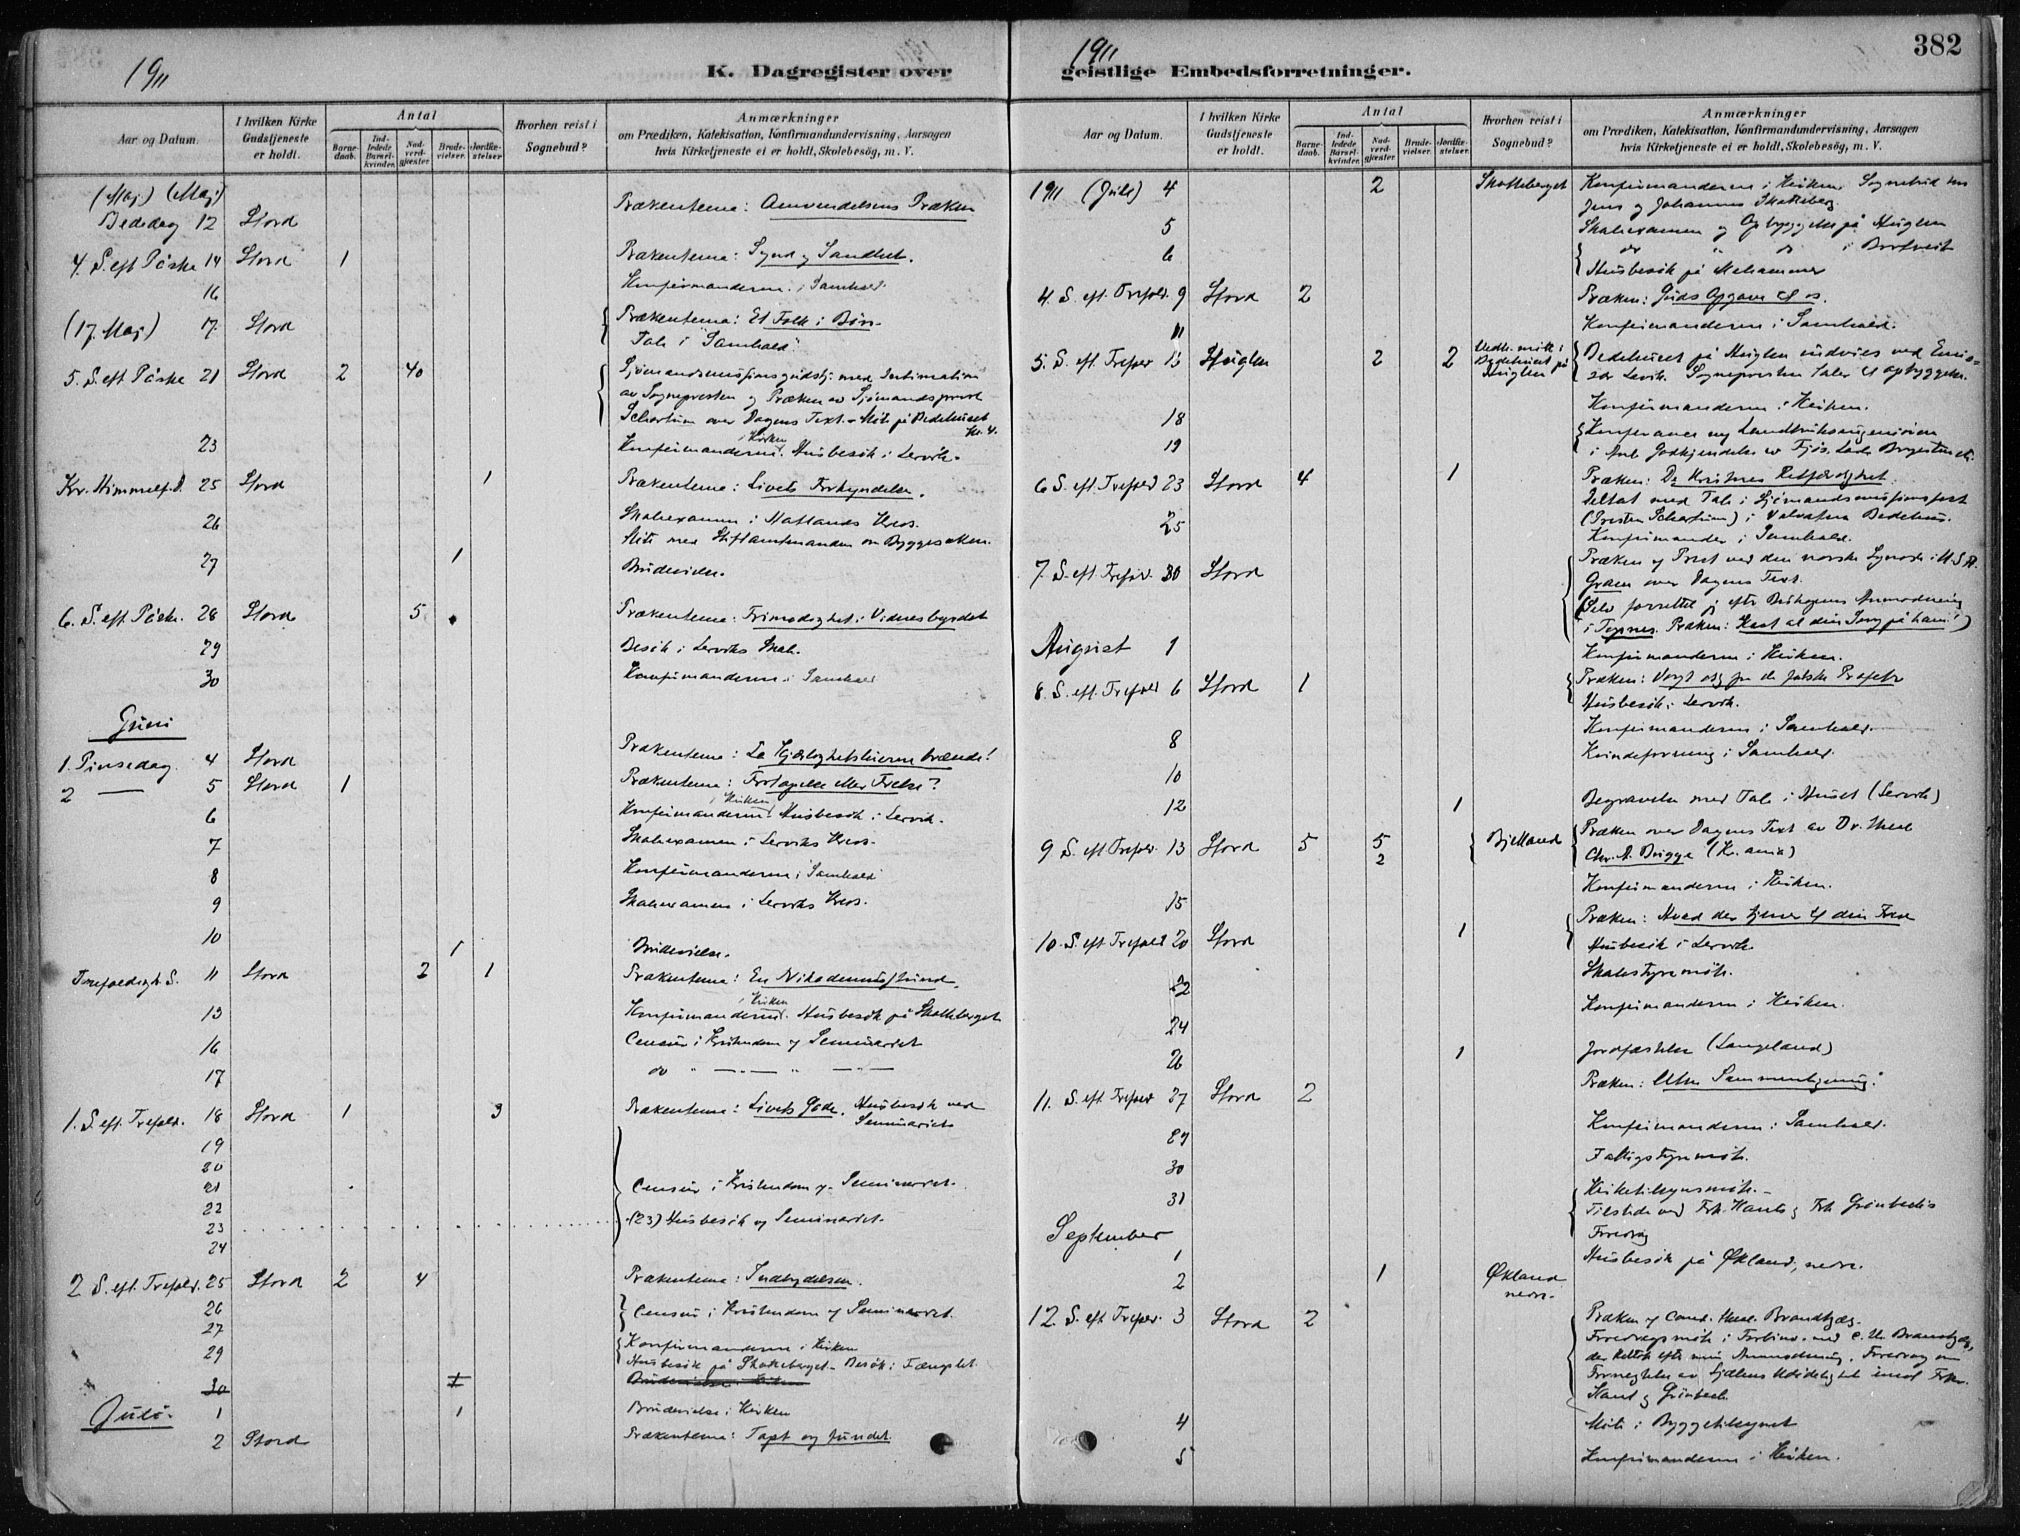 1911
K. Dagregister over
Aar og Datum.
I hvilken Kirke Gudstjeneste er holdt.
Antal
Barne-daab.
Ind-ledede Barsel-kvinder.
Nad-verd-gjester
Brude-vielser.
Jordfæ-stelser
Hvorhen reist i Sognebud?
Anmærkninger
om Prædiken, Katekisation, Konfirmandundervisning, Aarsagen
hvis Kirketjeneste ei er holdt, Skolebesøg, m. V.
(Maj) (Maj)
Bededag 12 Stord Prækentema: Omvendelsens Præken
4. S. eft. Påske 14 Stord 1 Prækentema: Synd og Sandhet.
16 Konfirmanderne i Samhald
(17. Maj) 17. Stord Prækentema: Et Folk i Bøn.
Tale i "Samhald".
5. S. eft. Påske 21 Stord 2 40 Sjømandsmissionsgudstj. med Intimation
av Sognepresten og Præken av Sjømandsprest
Schartum over Dagens Text. - Møte på Bedehuset
Kl. 4.
23 Konfirmanderne i Kirken. Husbesøk i Lervik.
Kr. Himmelf. D. 25 Stord 1 Prækentema: Livets Forkyndelse.
26 Skoleexamen i Hatlands Kreds.
Møte med Stiftamtmanden om Byggesaken.
27 1 Brudevielse.
6. S. eft. Påske. 28 Stord 5 Prækentema: Frimodighet i Vidnesbyrdet
29 Besøk i Lerviks Skole.
30 Konfirmanderne i Samhald
Juni
1. Pinsedag. 4 Stord Prækentema: La Kjærlighetsluerne brænde!
2 — 5 Stord 1 Prækentema: Fortapelse eller Frelse?
6 Konfirmanderne i Kirken. Husbesøk i Lervik.
7 Skoleexamen i Lerviks Kreds.
8 Konfirmanderne i Samhald
9 Skoleexamen i Lerviks Kreds.
10 1 Brudevielse.
Trefoldigh. S. 11 Stord 2 1 Prækentema: En Nikodemusstund.
13 Konfirmanderne i Kirken. Husbesøk på Skotteberget
16 Censur i Kristendom v. Seminariet
17 do " — " — " —
1. S. eft. Trefold. 18 Stord 1 3 Prækentema: Livets Gode. Husbesøk ved
Seminariet
19
20
21 Censur i Kristendom v. Seminariet.
22
23 (23) Husbesøk v. Seminariet.
24
2 S. eft. Trefold. 25 Stord 2 4 Prækentema: Indbydelsen.
26 Censur i Kristendom v. Seminariet.
27
29 Konfirmanderne i Kirken
Husbesøk på Skotteberget - Besøk i Fængslet
30 1 Brudevielse i Kirken
Juli. 1 1 Brudevielse i Kirken
2 Stord Prækentema: Tapt og fundet.
1911
382
geistlige Embedsforretninger.
Aar og Datum.
I hvilken Kirke Gudstjeneste er holdt.
Antal
Barne-daab.
Ind-ledede Barsel-kvinder.
Nad-verd-gjester
Brude-vielser.
Jordfæ-stelser.
Hvorhen reist i Sognebud?
Anmærkninger
om Prædiken, Katekisation, Konfirmandundervisning, Aarsagen
hvis Kirketjeneste ei er holdt, Skolebesøg, m. V.
1911 (Juli) 4 2 Skotteberget Konfirmanderne i Kirken. Sognebud hos
Jens og Johannes Skotteberg.
5 Skoleexamen og Opbyggelse på Huglen
6 do " do i Bortveit
Husbesøk på Mehammer
4. S. eft. Trefold. 9 Stord 2 Præken: Guds Opgave til os.
11 Konfirmanderne i Samhald.
5. S. eft. Trefold. 16 Huglen 2 2 Vedk. møte i Bedehuset på Huglen Bedehuset på Huglen indvies ved
Lavik. Sognepresten taler til opbyggelse.
18 Konfirmanderne i Kirken.
19 Konferance
6 S. eft. Trefold 23 Stord 4 1 Præken: De Kristnes Retfærdighet.
Deltat med Tale i Sjømandsmissionsfest
(Presten Schartum) i Valvatna Bedehus.
25 Konfirmander i Samhald.
7. S. eft. Trefold. 30 Stord Præken v. Prest ved den norske Synode i U.S.A.
Gram over Dagens Text.
(Selv forrettet jeg efter Biskopens Anmodning
i Tysnes. Præken: Kast al din Sorg på ham!)
August 1 Konfirmanderne i Kirken.
8. S. eft. Trefold 6 Stord 1 Præken: Vogt dig for de falske Profeter
Husbesøk i Lervik.
8 Konfirmanderne i Samhald.
10 Kvindeforening i Samhald.
12 1 Begravelse med Tale i Huset (Lervik)
9 S. eft. Trefold. 13 Stord 5 5 2 Bjelland Præken over Dagens Text av Dr. theol
Chr. A. Brugge (Kr.ania)
15 Konfirmanderne i Kirken.
10. S. eft. Trefold 20 Stord 1 Præken: Hvad der tjener til din Fred
Husbesøk i Lervik
22 Skolestyremøte.
24 Konfirmanderne i Kirken.
26 1 Jordfæstelse (Langeland)
11. S. eft. Trefold 27 Stord 2 Præken: Uten Sammenligning!
29 Konfirmanderne i Samhald.
30 Fattigstyremøte.
31 Kirketilsynsmøte.
Tilstede ved Frk. Kants og Frk. Grönbechs
Foredrag
September
1 Husbesøk på Økland, nedre.
2 1 Økland nedre.
12 S. eft. Trefold. 3 Stord 2 Præken v. Cand. theol. Brandtzæg.
Foredragsmøte i Forbind. med C. th. Brandtzæg,
der deltok efter min Anmodning. Foredrag om
Fornegtelse av Sjælens Udødelighet imod Frkn.
Kant og Grönbech
4 Møte i Byggetilsynet
5 Konfirmanderne i Kirken.